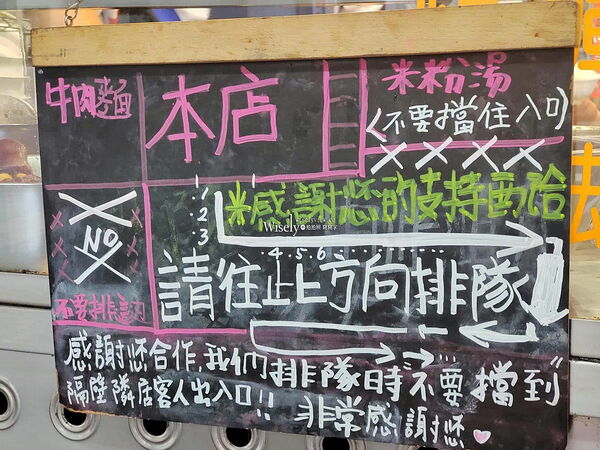 牛肉麵
本店
米粉湯
(不要擋住入口)
1
2
3
米感謝您的支持画洽
Wisely
NO
4.5.6
請往此方向排隊
不要排這刃
感謝您合作,我們排隊時不要擋到
隔壁隣店客人出入口!! 非常感謝您